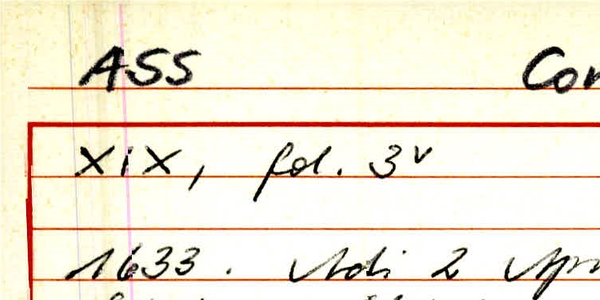 ASS Con
XIX, fol. 3v
1633. Adi 2 Apri